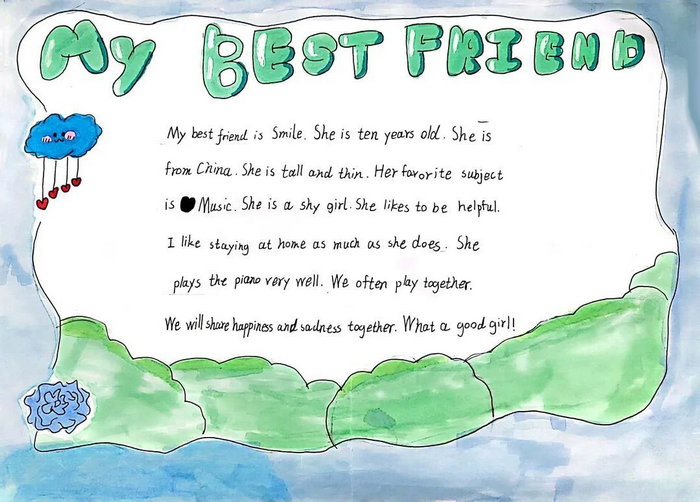 My BEST FRIEND
My best friend is Smile. She is ten years old. She is
from China. She is tall and thin. Her favorite subject
is Music. She is a shy girl. She likes to be helpful.
I like staying at home as much as she does. She
plays the piano very well. We often play together.
We will share happiness and sadness together. What a good girl!